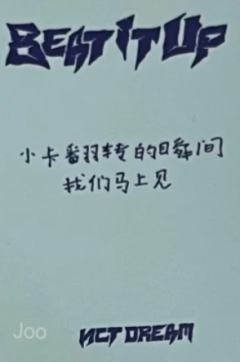 BEAT IT UP
小卡翻转的瞬间
我们马上见
Joo
NCT DREAM